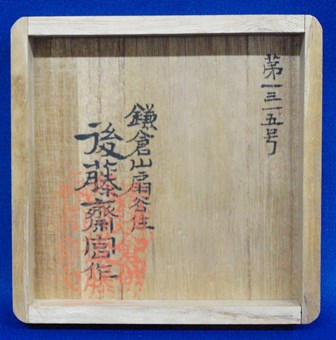 第一三一五号
鎌倉山扇谷住
後藤齋宮作